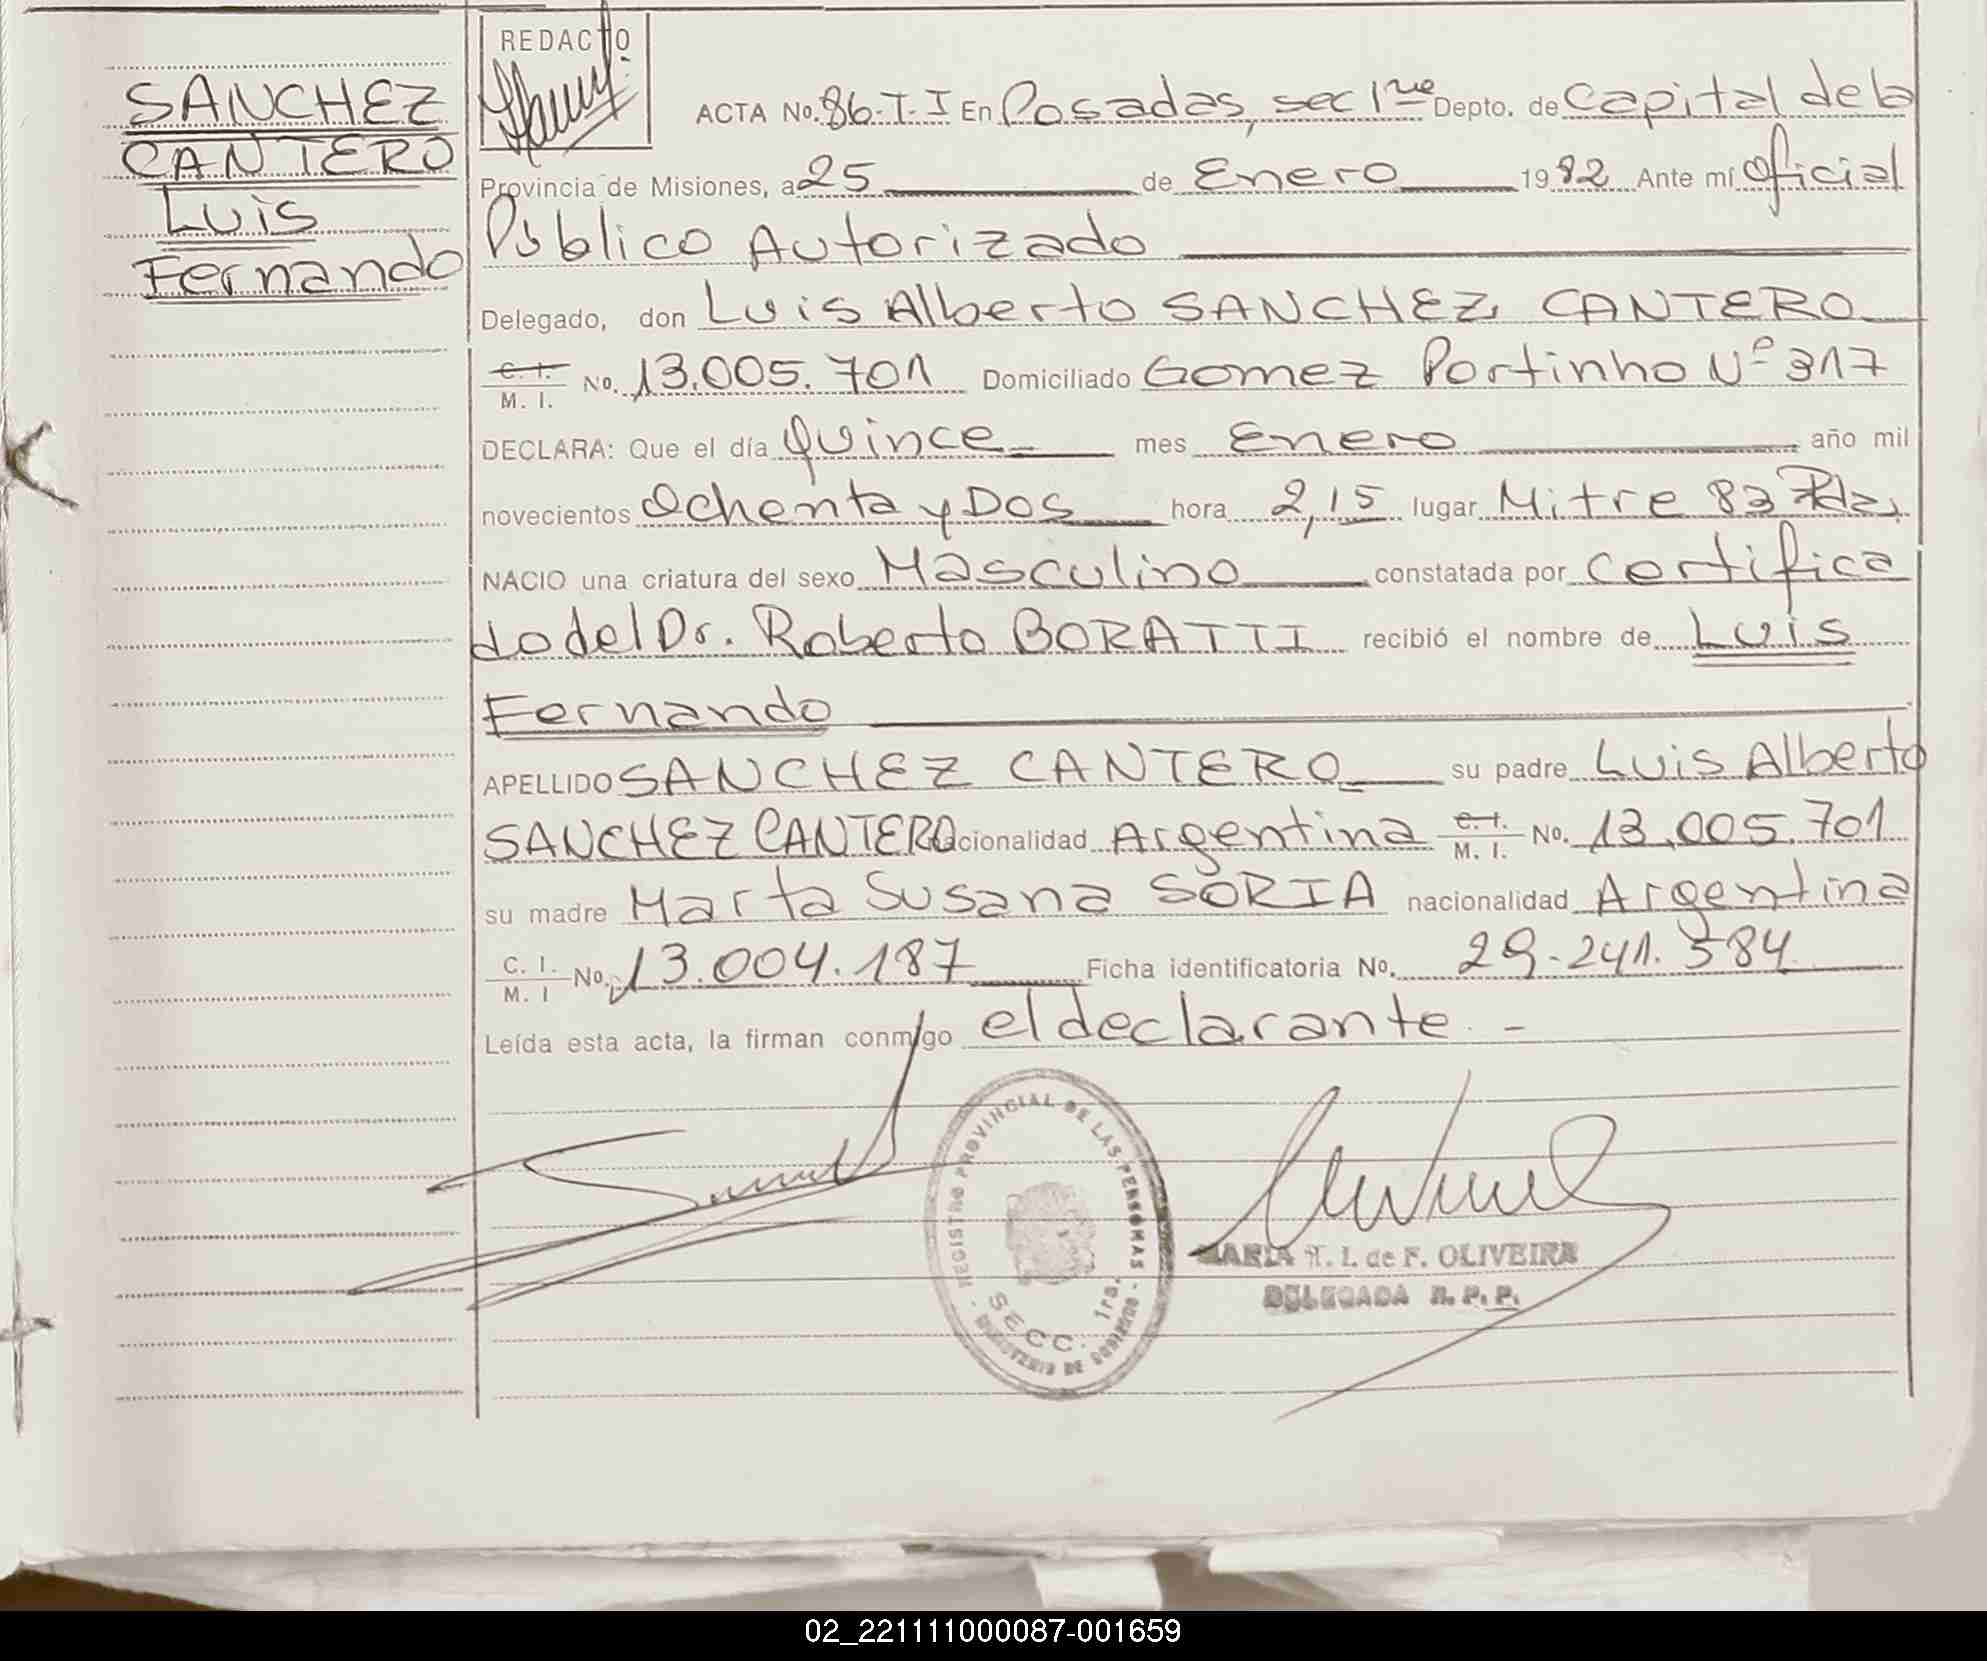 SANCHEZ
CANTERO
Luis
Fernando
REDACTO
ACTA No. 86-T-I En Posadas, sec 1ra Depto. de Capital de la
Provincia de Misiones, a 25 de Enero 1982 Ante mí Oficial
Público Autorizado
Delegado, don Luis Alberto SANCHEZ CANTERO
C. I. / M. I. No. 13.005.701 Domiciliado Gomez Portinho Nº 317
DECLARA: Que el día quince mes Enero año mil
novecientos Ochenta y Dos hora 2,15 lugar Mitre 83 Pdas,
NACIO una criatura del sexo Masculino constatada por certifica
do del Dr. Roberto BORATTI recibió el nombre de Luis
Fernando
APELLIDO SANCHEZ CANTERO su padre Luis Alberto
SANCHEZ CANTERO nacionalidad Argentina C. I. / M. I. No. 13.005.701
su madre Marta Susana SORIA nacionalidad Argentina
C. I. / M. I No. 13.004.187 Ficha identificatoria No. 29.241.384
Leída esta acta, la firman conmigo el declarante. -
REGISTRO PROVINCIAL DE LAS PERSONAS
SECC. 1ra.
MARIA I. de F. OLIVEIRA
DELEGADA R. P. P.
02_221111000087-001659